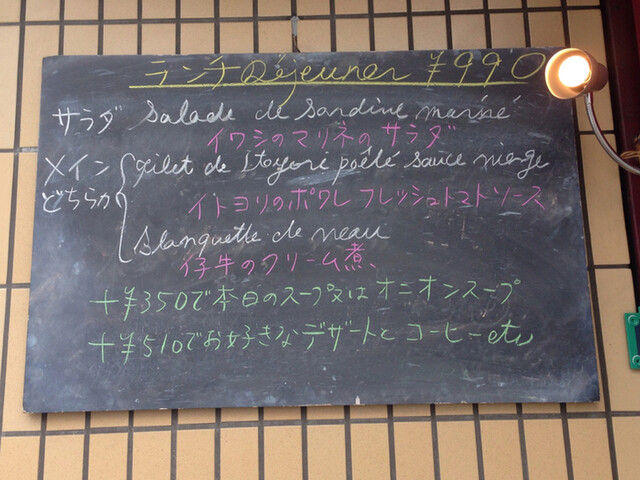 ランチ Déjeuner ¥990
サラダ Salade de Sardine mariné
イワシのマリネのサラダ
メイン どちらか
filet de Itoyori poêlé sauce vierge
イトヨリのポワレ フレッシュトマトソース
Blanquette de veau
仔牛のクリーム煮、
+¥350で本日のスープ又はオニオンスープ
+¥510でお好きなデザートとコーヒー etc